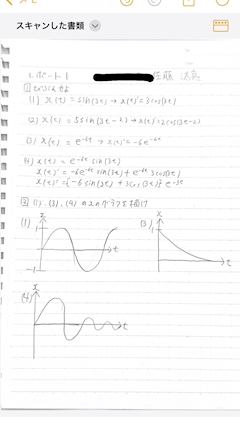 スキャンした書類
レポート1 佐藤
(1) x(t) = sin(3t) → x(t)' = 3cos(3t)
(2) x(t) = 5sin(3t-2) → x(t)' = 2cos(3t-2)
(3) x(t) = e^-6t → x(t)' = -6e^-6t
(4) x(t) = e^-6t sin(3t)
x(t)' = -6e^-6t sin(3t) + e^-6t 3cos(3t)
x(t)' = {-6sin(3t) + 3cos(3t)} e^-3t
[2] (1), (3), (4) のxのグラフを描け
(1) x 1 -1 t
(3) x 1 t
(4) x t